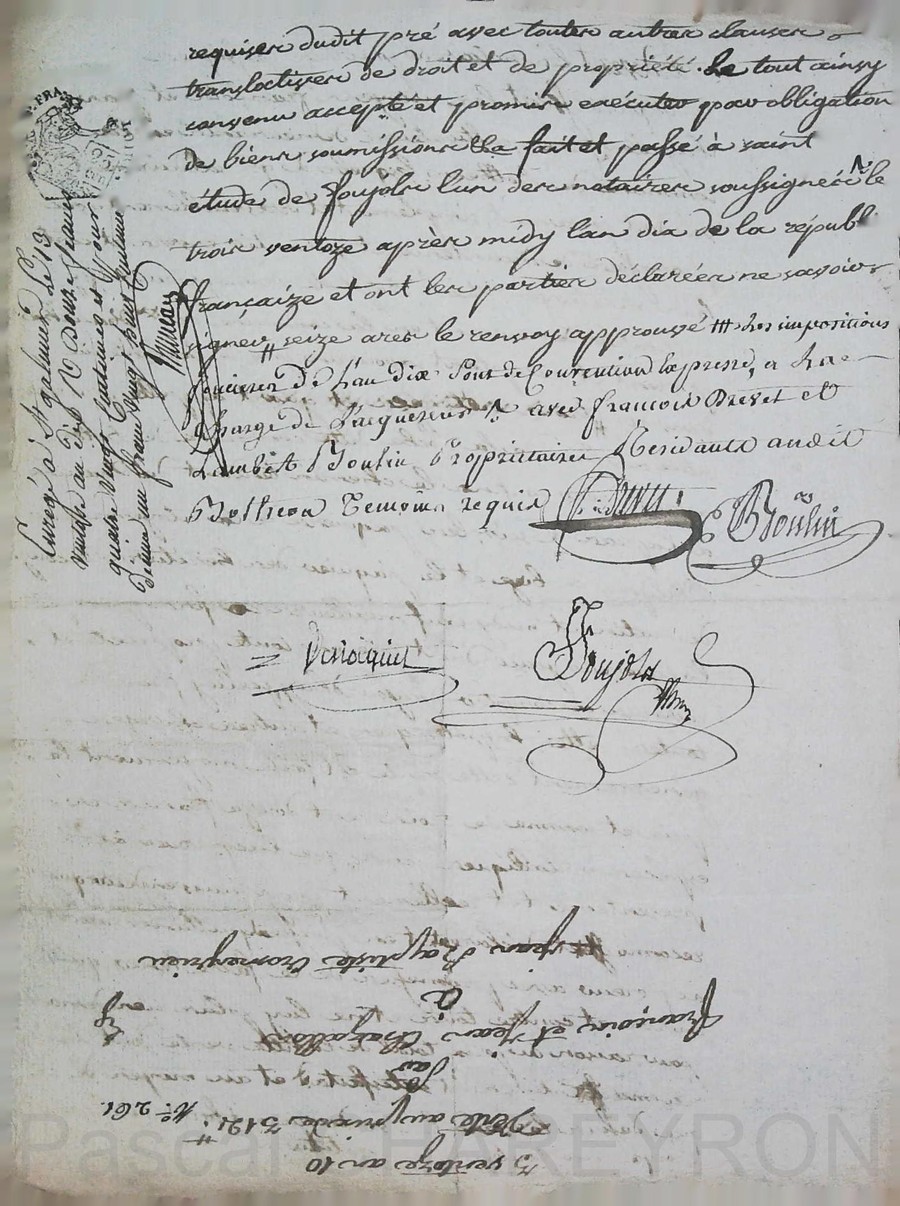 requises dudit pré avec toutes autres clauses
translatives de droit et de propriété. Le tout ainsy
convenu accepté et promis exécuter par obligation
de biens soumissions &a fait et passé à saint
étude de foujols l'un des notaires soussignés le
trois ventoze après midy lan dix de la républ
françaize et ont les parties déclarées ne savoir
signer # seize ares le renvoy approuvé ## Les impositions
foncieres de l'an dix sont de Convention expresse a la
Charge de l'acquereur avec françois Brevet et
Lambert Boulin Propriétaires Residants audit
Rotheon Temoins requis
Boulin
foujols
Enregé à St galmier Le 13
ventose an dix Reçu Douze francs
quatre vingt centimes et pour
Dixme un franc vingt huit centimes
3 ventoze an 10
Vente au prix de 312#
No. 261.
par
françois et jean Chazallon
à
jean Baptiste Cromeyrieu
Pascal HERREYRON